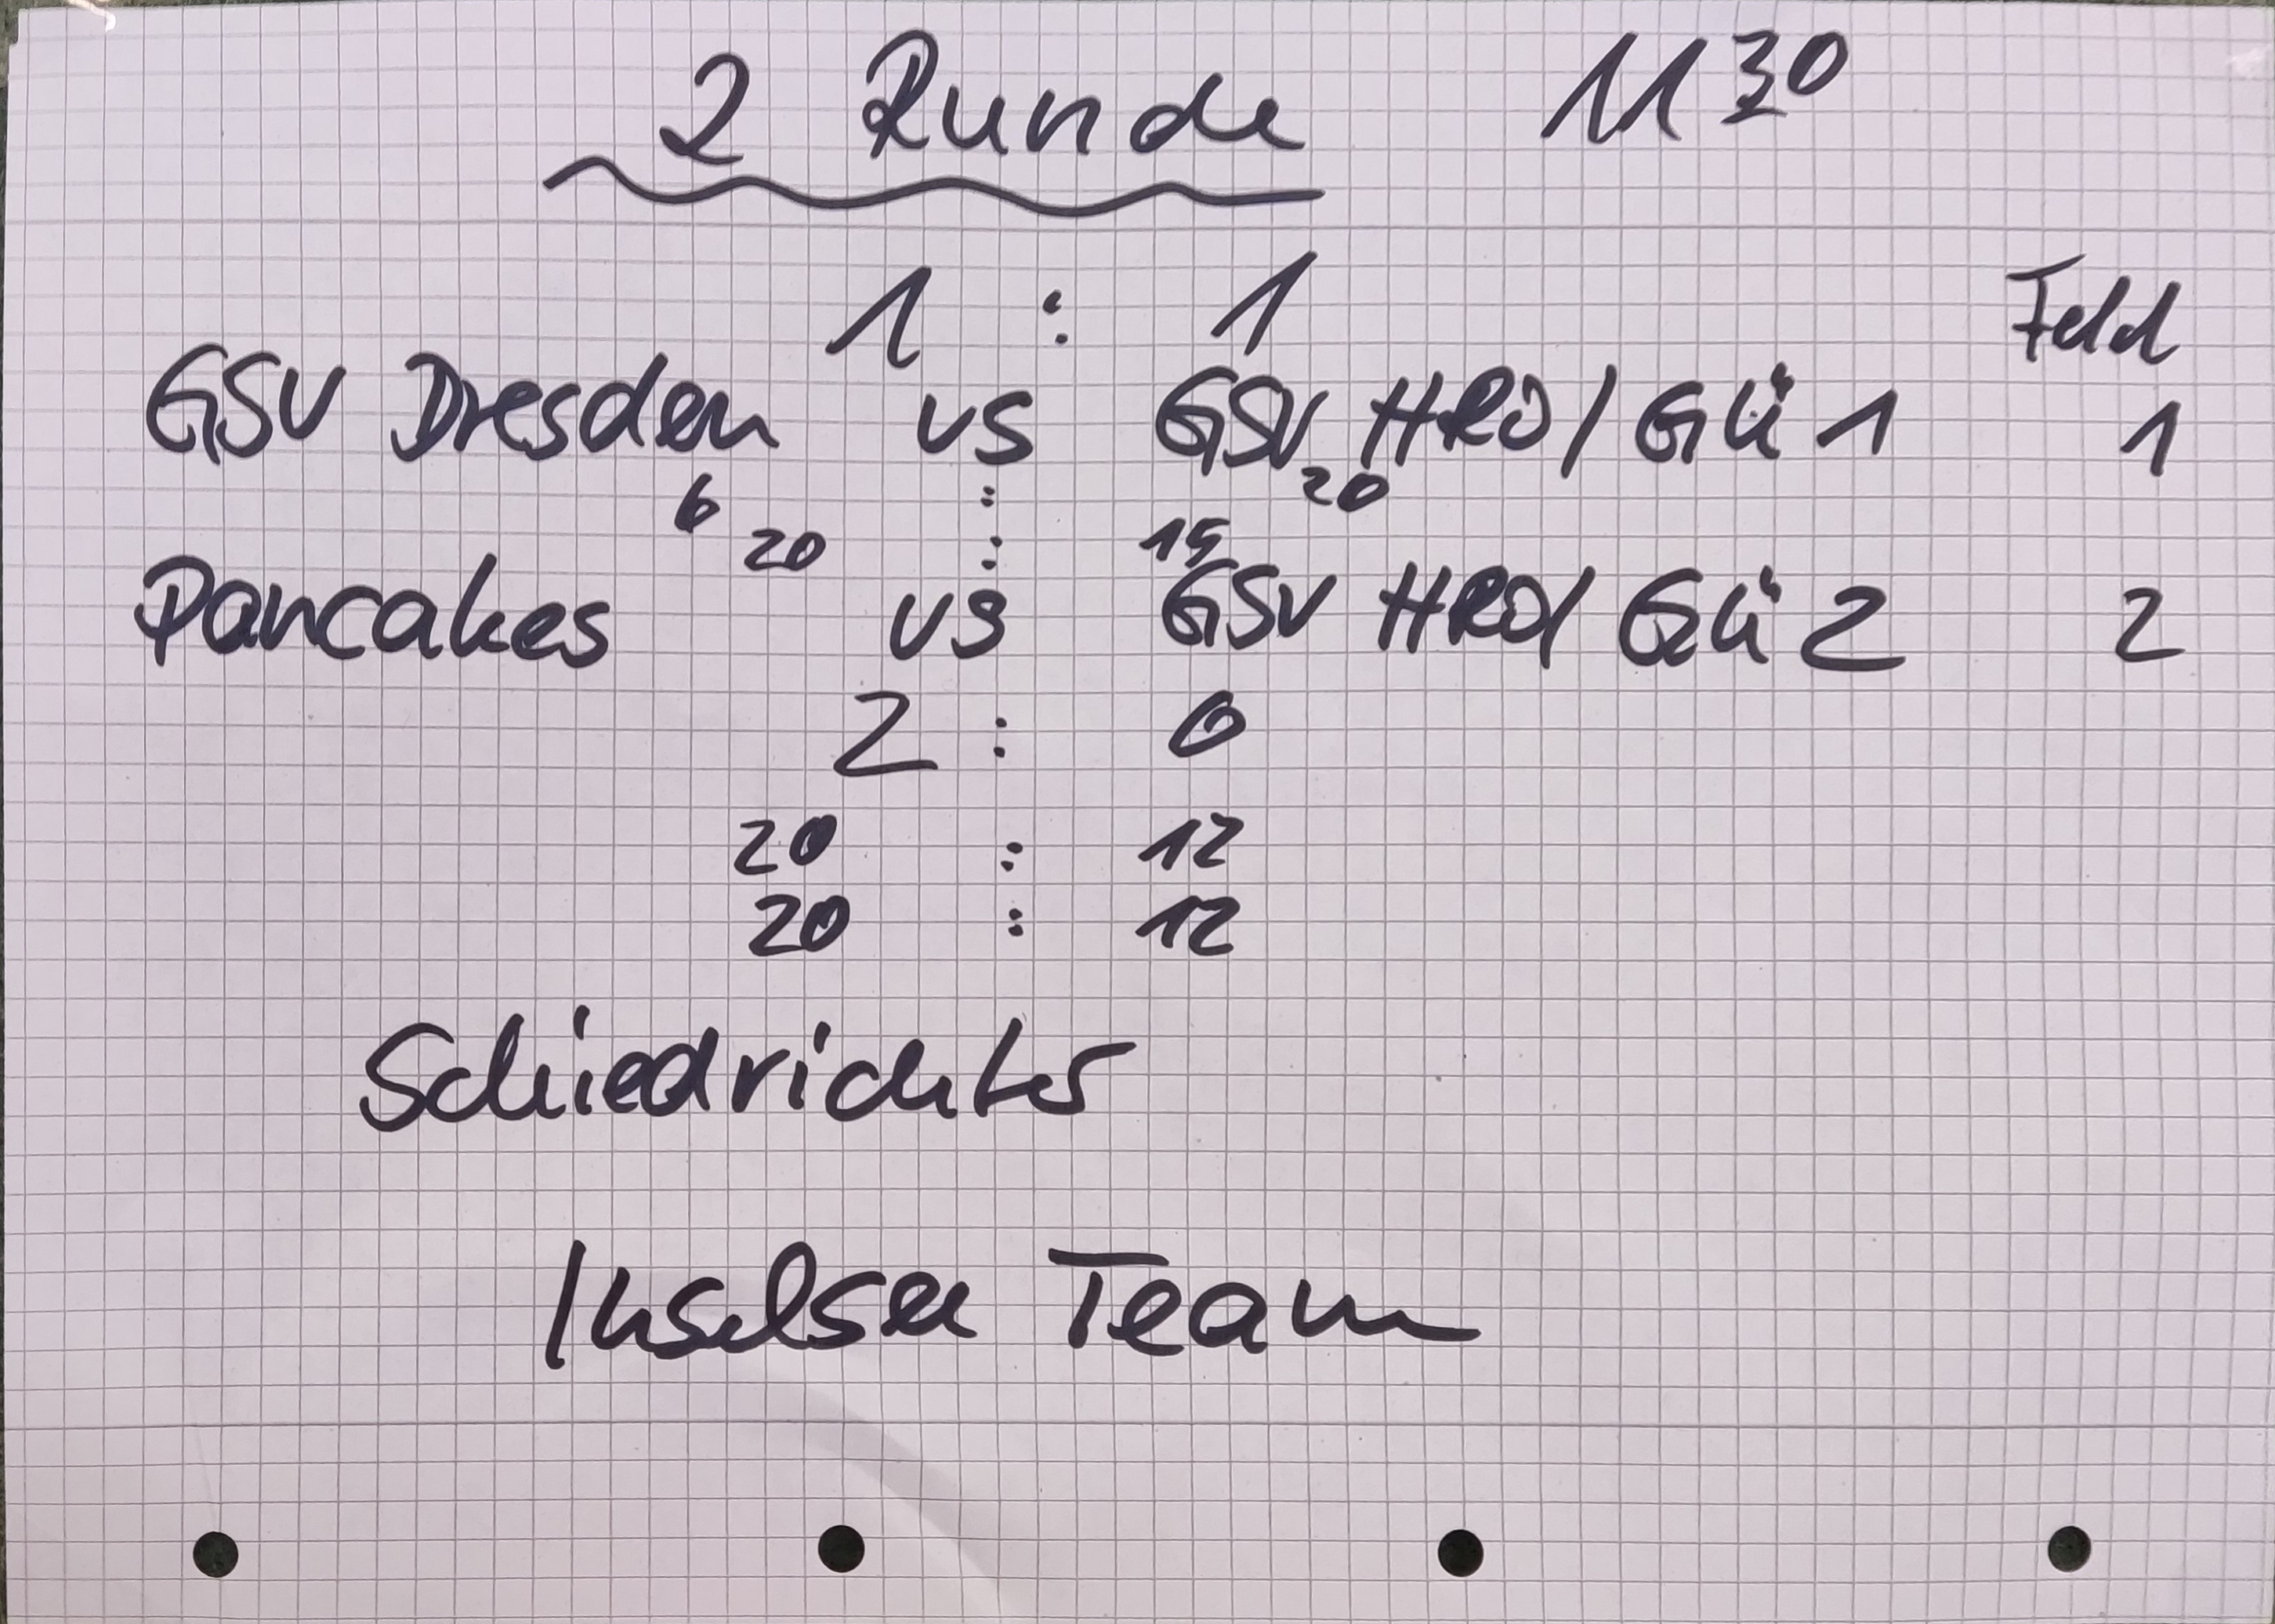 2 Runde 11 30
1 : 1 Feld
GSV Dresden vs GSV HRO/ Gü 1 1
6 : 20
20 : 15
Pancakes vs GSV HRO/ Gü 2 2
2 : 0
20 : 12
20 : 12
Schiedrichter
Inselsee Team